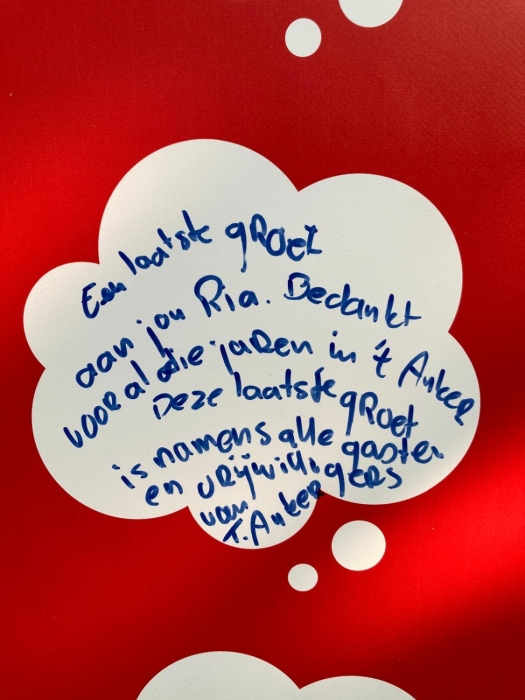 Een laatste groet
aan jou Ria. Bedankt
voor al die jaren in 't Anker
Deze laatste groet
is namens alle gasten
en vrijwilligers
van
T. Anker